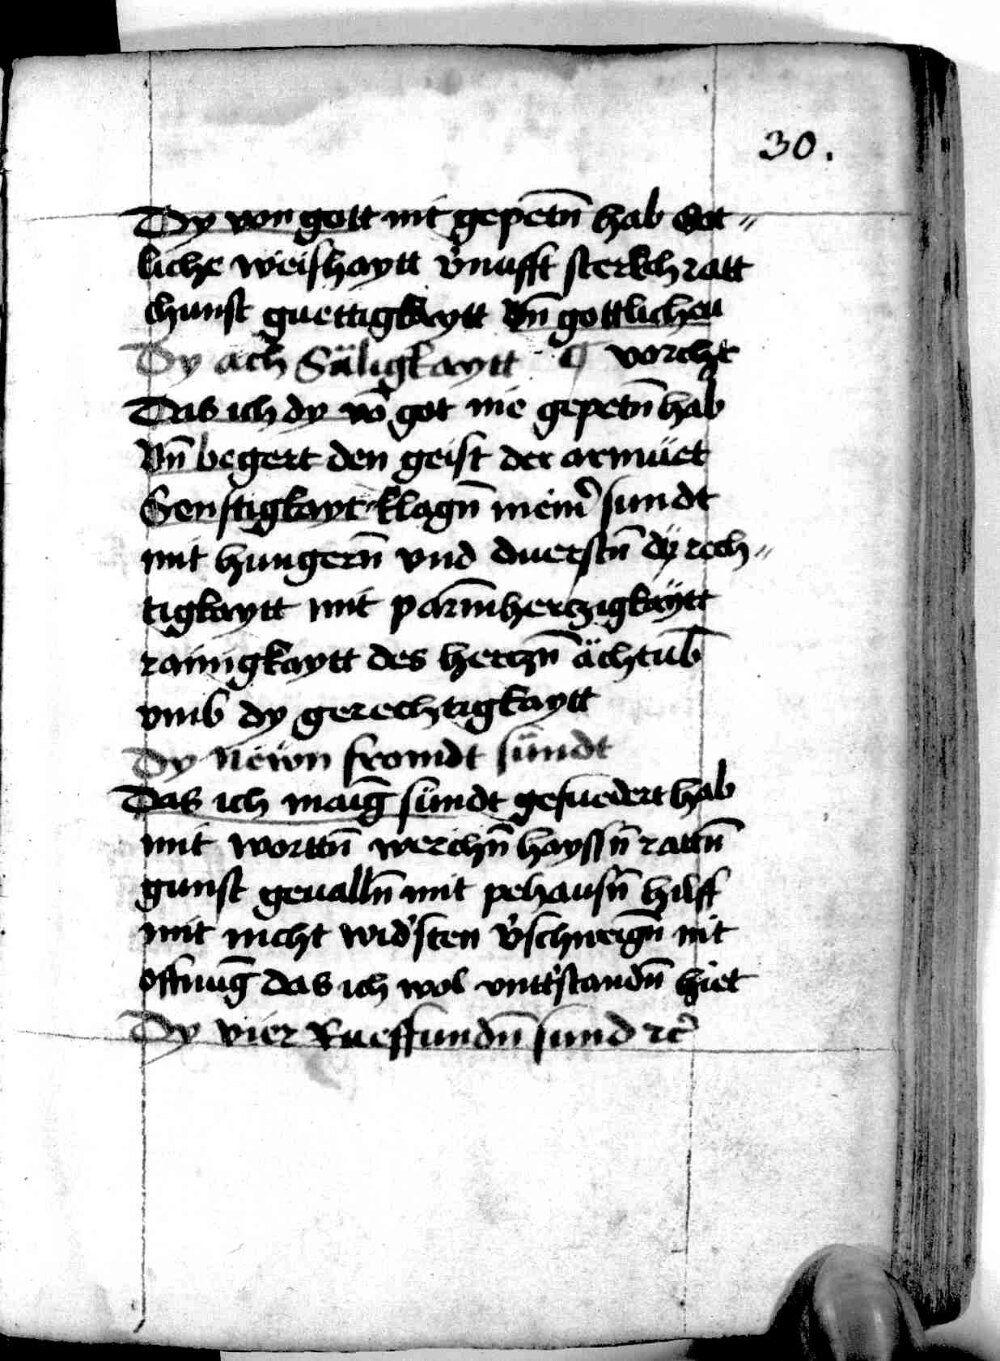 30.
Dy von gott nit gepetn̄ hab Got⸗
liche weishaytt v̓nufft sterkch ratt
chunst guettigkaytt Vn̄ gottlichen
Dy ach Säligkaytt ¶ vorcht
Das ich dy vō got nie gepetn̄ hab
Vn̄ begert den geist der armüet
Senftigkayt klagn̄ meinr̓ sundt
mit hungern̄ vnd duerstn̄ dÿ rech⸗
tigkaytt mit parm̄hertzigkaÿtt
rainigkaytt des hertzn̄ ächtūb
vmb dy gerechtigkaytt
Dy newn fromdt sündt
Das ich maīg sündt gefuedert hab
mit worttn̄ werchn̄ hayssn̄ rattn̄
gunst geualln̄ mit pehausn̄ hilff
mit nicht wid̓sten v̓schweign̄ nit
offnūg das ich wol vntt̓standn̄ hiet
Dy vier Rueffundn̄ sund ꝛc̓